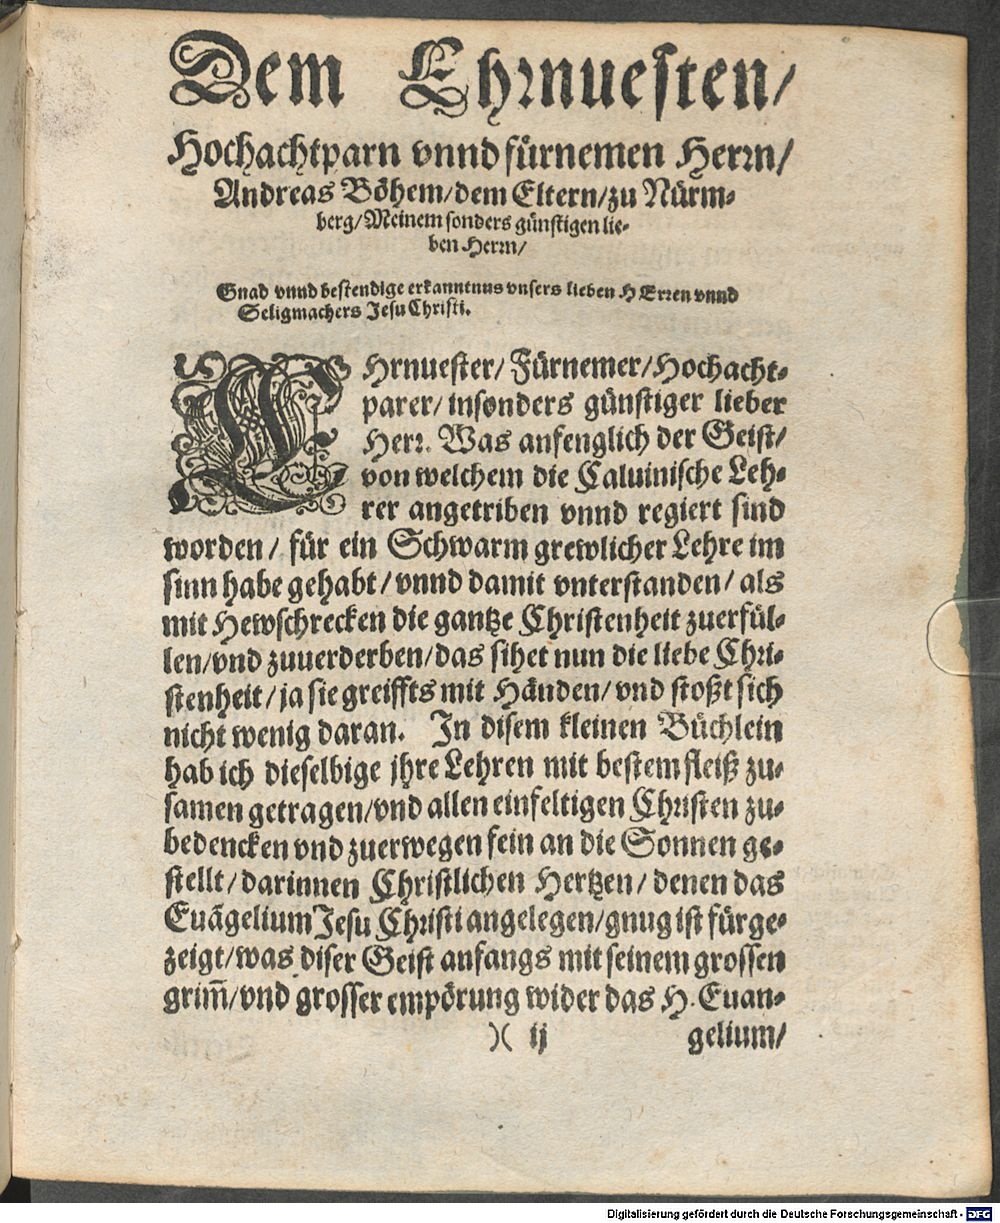 Dem Ehrnuesten/
Hochachtparn vnnd fürnemen Herrn/
Andreas Böhem/dem Eltern/zu Nürm-
berg/Meinem sonders günstigen lie-
ben Herrn/
Gnad vnnd bestendige erkanntnus vnsers lieben HErren vnnd
Seligmachers Jesu Christi.
EHrnuester/ Fürnemer/Hochacht-
parer/ insonders günstiger lieber
Herr. Was anfenglich der Geist/
von welchem die Caluinische Leh-
rer angetriben vnnd regiert sind
worden/ für ein Schwarm grewlicher Lehre im
sinn habe gehabt/vnnd damit vnterstanden/ als
mit Hewschrecken die gantze Christenheit zuerfül-
len/vnd zuuerderben/das sihet nun die liebe Chri-
stenheit/ja sie greiffts mit Händen/vnd stoßt sich
nicht wenig daran. In disem kleinen Büchlein
hab ich dieselbige jhre Lehren mit bestem fleiß zu-
samen getragen/vnd allen einfeltigen Christen zu-
bedencken vnd zuerwegen fein an die Sonnen ge-
stellt/darinnen Christlichen Hertzen/denen das
Euãgelium Jesu Christi angelegen/gnug ist fürge-
zeigt/was diser Geist anfangs mit seinem grossen
grim̃/vnd grosser empörung wider das H. Euan-
)( ij gelium/
Digitalisierung gefördert durch die Deutsche Forschungsgemeinschaft - DFG